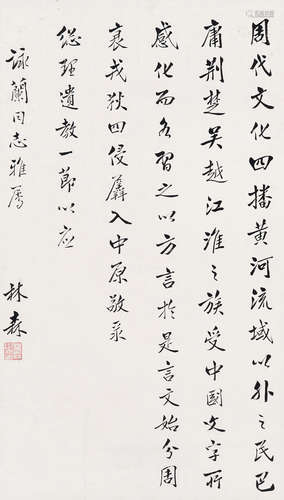 周代文化四播黄河流域以外之民巴
庸荆楚吴越江淮之族受中國文字所
感化而各習之以方言於是言文始分周
衰戎狄四侵羼入中原敬录
总理遺教一節以应
詠蘭同志雅屬
林森